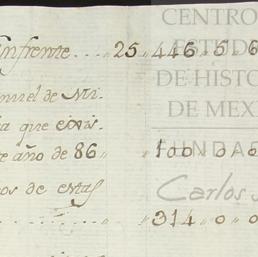 Enfrente .... 25,,446,,5,,6
nuel de Mi-
a que exis-
e año de 86,, ,,100,,0,,0
os de estas
..... ,,314,,0,,0
CENTRO
ESTUD
DE HISTO
DE MEX
FUNDA
Carlos S